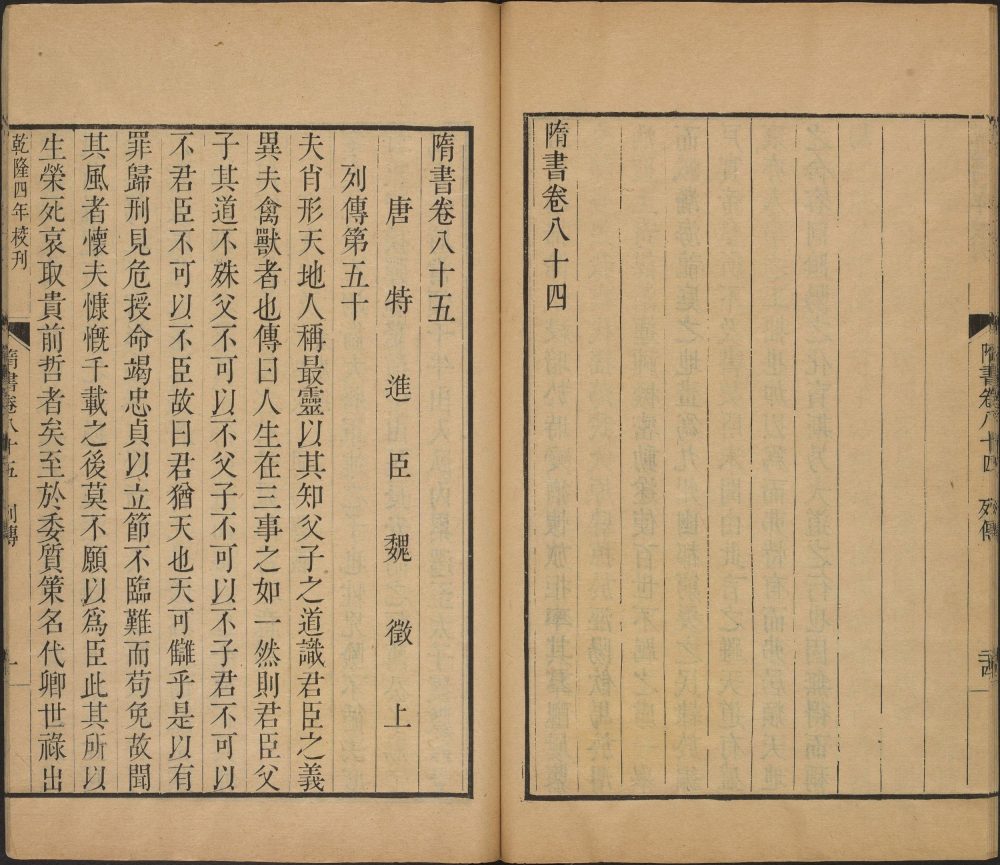 隋書卷八十四 列傳
隋書卷八十四
隋書卷八十五
唐特進臣魏徵上
列傳第五十
夫肖形天地人稱最靈以其知父子之道識君臣之義
異夫禽獸者也傳曰人生在三事之如一然則君臣父
子其道不殊父不可以不父子不可以不子君不可以
不君臣不可以不臣故曰君猶天也天可讎乎是以有
罪歸刑見危授命竭忠貞以立節不臨難而苟免故聞
其風者懷夫慷慨千載之後莫不願以爲臣此其所以
生榮死哀取貴前哲者矣至於委質策名代卿世祿出
乾隆四年校刊
隋書卷八十五 列傳 一